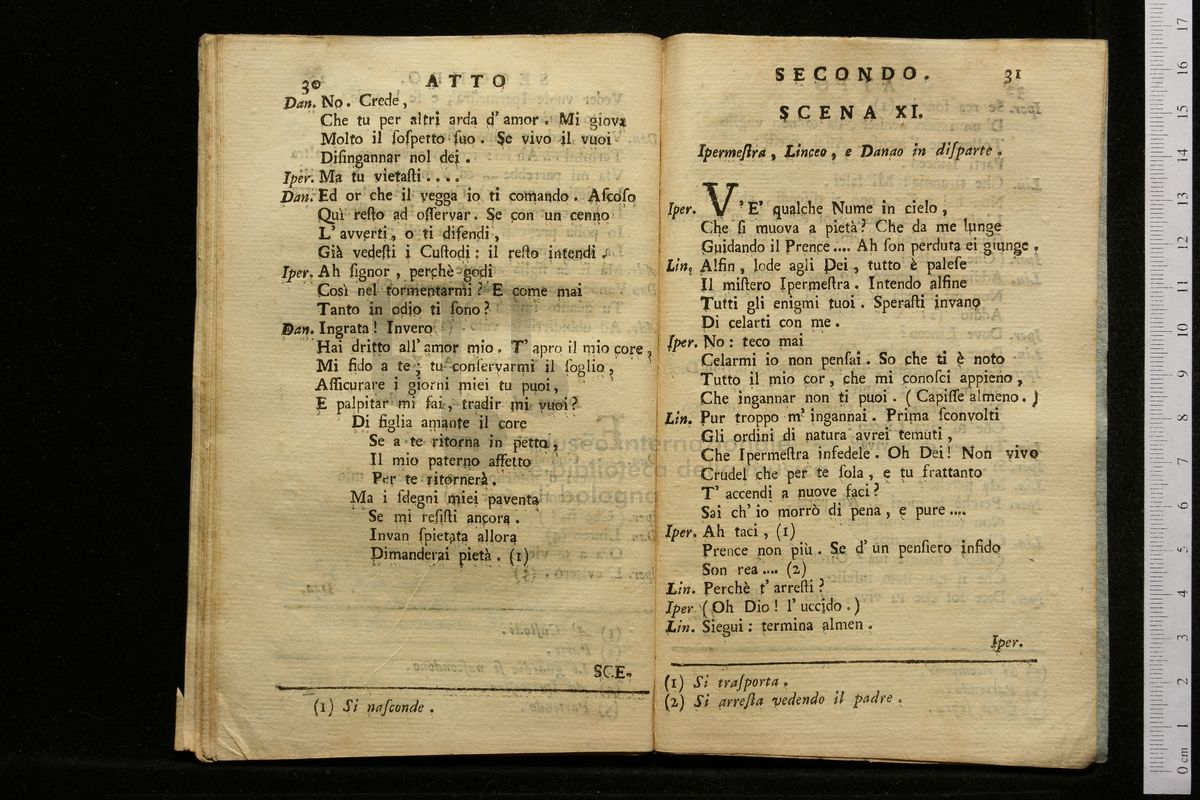 30 ATTO
Dan. No. Crede,
Che tu per altri arda d'amor. Mi giova
Molto il ſoſpetto ſuo. Se vivo il vuoi
Diſingannar nol dei.
Iper. Ma tu vietaſti....
Dan. Ed or che il vegga io ti comando. Aſcoſo
Quì reſto ad oſſervar. Se con un cenno
L'avverti, o ti difendi,
Già vedeſti i Cuſtodi: il reſto intendi.
Iper. Ah ſignor, perchè godi
Così nel tormentarmi? E come mai
Tanto in odio ti ſono?
Dan. Ingrata! Invero
Hai dritto all'amor mio. T'apro il mio core,
Mi fido a te; tu conſervarmi il ſoglio,
Aſſicurare i giorni miei tu puoi,
E palpitar mi fai, tradir mi vuoi?
Di figlia amante il core
Se a te ritorna in petto,
Il mio paterno affetto
Per te ritornerà.
Ma i ſdegni miei paventa
Se mi reſiſti ancora.
Invan ſpietata allora
Dimanderai pietà. (1)
SCE-
(1) Si naſconde.
SECONDO. 31
SCENA XI.
Ipermeſtra, Linceo, e Danao in diſparte.
Iper. V'E' qualche Nume in cielo,
Che ſi muova a pietà? Che da me lunge
Guidando il Prence.... Ah ſon perduta ei giunge.
Lin. Alfin, lode agli Dei, tutto è paleſe
Il miſtero Ipermeſtra. Intendo alfine
Tutti gli enigmi tuoi. Speraſti invano
Di celarti con me.
Iper. No: teco mai
Celarmi io non penſai. So che ti è noto
Tutto il mio cor, che mi conoſci appieno,
Che ingannar non ti puoi. (Capiſſe almeno.)
Lin. Pur troppo m'ingannai. Prima ſconvolti
Gli ordini di natura avrei temuti,
Che Ipermeſtra infedele. Oh Dei! Non vivo
Crudel che per te ſola, e tu frattanto
T'accendi a nuove faci?
Sai ch'io morrò di pena, e pure....
Iper. Ah taci, (1)
Prence non più. Se d'un penſiero infido
Son rea.... (2)
Lin. Perchè t'arreſti?
Iper (Oh Dio! l'uccido.)
Lin. Siegui: termina almen.
Iper.
(1) Si traſporta.
(2) Si arreſta vedendo il padre.